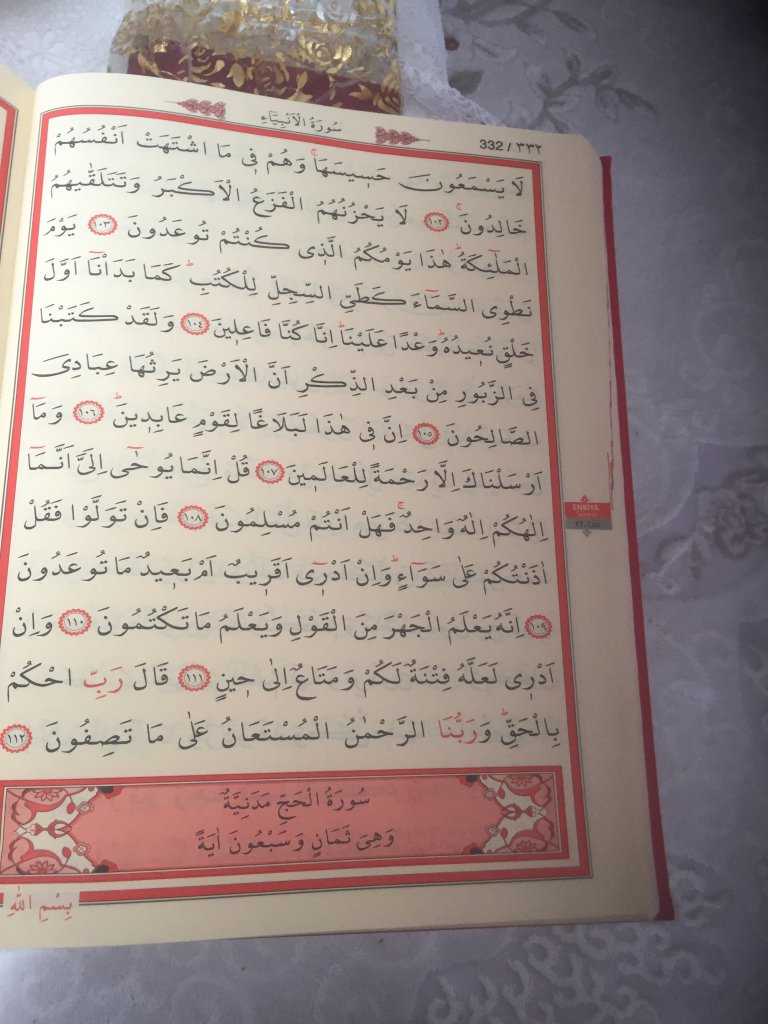 سُورَةُ الْاَنْبِيَاءِ
332 / ٣٣٢
لَا يَسْمَعُونَ حَسٖيسَهَاۚ وَهُمْ فٖي مَا اشْتَهَتْ اَنْفُسُهُمْ
خَالِدُونَۚ ﴿١٠٢﴾ لَا يَحْزُنُهُمُ الْفَزَعُ الْاَكْبَرُ وَتَتَلَقّٰيهُمُ
الْمَلٰٓئِكَةُؕ هٰذَا يَوْمُكُمُ الَّذٖي كُنْتُمْ تُوعَدُونَ ﴿١٠٣﴾ يَوْمَ
نَطْوِي السَّمَٓاءَ كَطَيِّ السِّجِلِّ لِلْكُتُبِؕ كَمَا بَدَاْنَٓا اَوَّلَ
خَلْقٍ نُعٖيدُهُؕ وَعْدًا عَلَيْنَاؕ اِنَّا كُنَّا فَاعِلٖينَ ﴿١٠٤﴾ وَلَقَدْ كَتَبْنَا
فِي الزَّبُورِ مِنْ بَعْدِ الذِّكْرِ اَنَّ الْاَرْضَ يَرِثُهَا عِبَادِيَ
الصَّالِحُونَ ﴿١٠٥﴾ اِنَّ فٖي هٰذَا لَبَلَاغًا لِقَوْمٍ عَابِدٖينَؕ ﴿١٠٦﴾ وَمَٓا
اَرْسَلْنَاكَ اِلَّا رَحْمَةً لِلْعَالَمٖينَ ﴿١٠٧﴾ قُلْ اِنَّمَا يُوحٰٓى اِلَيَّ اَنَّمَٓا
اِلٰهُكُمْ اِلٰهٌ وَاحِدٌۚ فَهَلْ اَنْتُمْ مُسْلِمُونَ ﴿١٠٨﴾ فَاِنْ تَوَلَّوْا فَقُلْ
اٰذَنْتُكُمْ عَلٰى سَوَٓاءٍؕ وَاِنْ اَدْرٖٓي اَقَرٖيبٌ اَمْ بَعٖيدٌ مَا تُوعَدُونَ
﴿١٠٩﴾ اِنَّهُ يَعْلَمُ الْجَهْرَ مِنَ الْقَوْلِ وَيَعْلَمُ مَا تَكْتُمُونَ ﴿١١٠﴾ وَاِنْ
اَدْرٖي لَعَلَّهُ فِتْنَةٌ لَكُمْ وَمَتَاعٌ اِلٰى حٖينٍ ﴿١١١﴾ قَالَ رَبِّ احْكُمْ
بِالْحَقِّؕ وَرَبُّنَا الرَّحْمٰنُ الْمُسْتَعَانُ عَلٰى مَا تَصِفُونَ ﴿١١٢﴾
ENBİYA
Suresi
17. Cüz
سُورَةُ الْحَجِّ مَدَنِيَّةٌ
وَهِيَ ثَمَانٍ وَسَبْعُونَ اٰيَةً
بِسْمِ اللّٰهِ